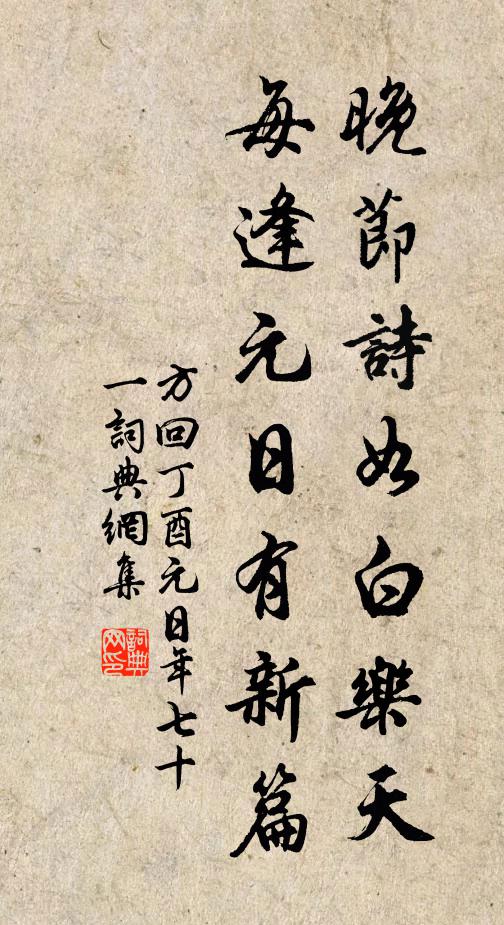 晚節詩如白樂天
每逢元日有新篇
方回丁酉元日年七十
一詞典網集
詞典
网印